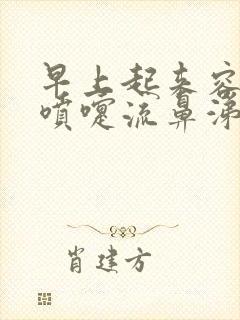 早上起来容
喷嚏流鼻涕
肖建方